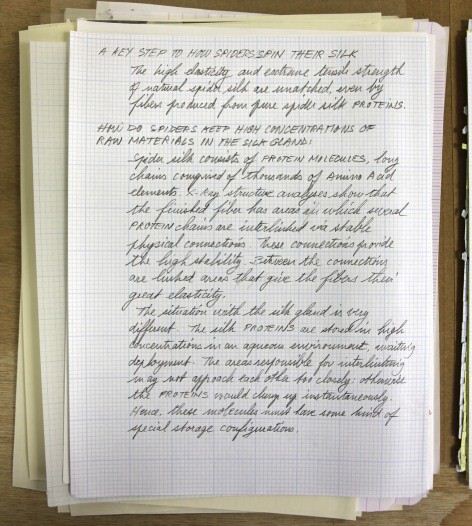 A KEY STEP TO HOW SPIDERS SPIN THEIR SILK
The high elasticity and extreme tensile strength
of natural spider silk are unmatched, even by
fibers produced from pure spider silk PROTEINS.
HOW DO SPIDERS KEEP HIGH CONCENTRATIONS OF
RAW MATERIALS IN THE SILK GLAND:
Spider silk consists of PROTEIN MOLECULES, long
chains comprised of thousands of Amino Acid
elements. X-Ray structure analyses show that
the finished fiber has areas in which several
PROTEIN chains are interlinked via stable
physical connections. These connections provide
the high stability. Between the connections
are linked areas that give the fibers their
great elasticity.
The situation with the silk gland is very
different. The silk PROTEINS are stored in high
concentrations in an aqueous environment, awaiting
deployment. The areas responsible for interlinking
may not approach each other too closely; otherwise
the PROTEINS would clump up instantaneously.
Hence, these molecules must have some kind of
special storage configurations.